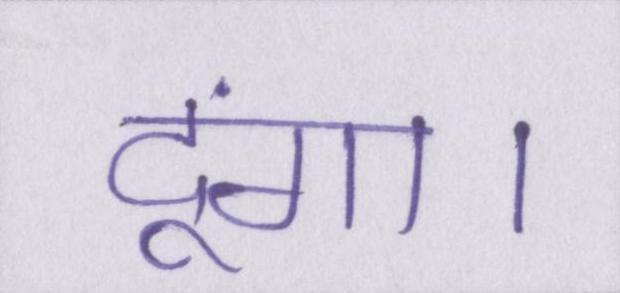 दूंगा।